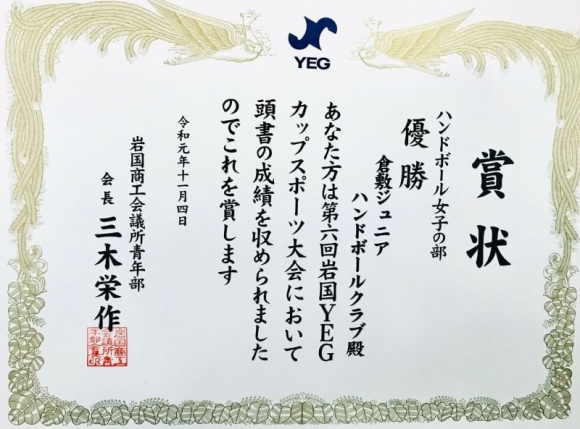 YEG
賞状
ハンドボール女子の部
優勝
倉敷ジュニア
ハンドボールクラブ殿
あなた方は第六回岩国YEG
カップスポーツ大会において
頭書の成績を収められました
のでこれを賞します
令和元年十一月四日
岩国商工会議所青年部
会長 三木栄作